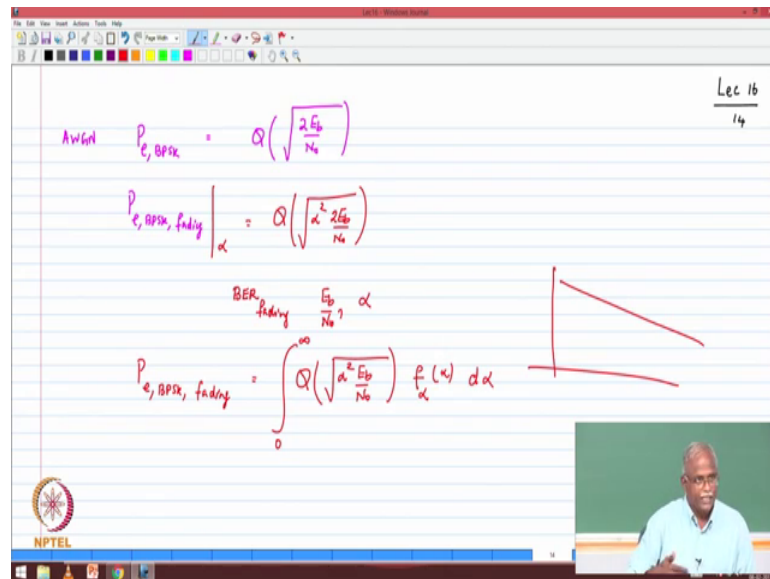 Lec16 - Windows Journal
File Edit View Insert Actions Tools Help
Page Width
B I
Lec 16
14
AWGN P_{e, BPSK} = Q(√(2E_b/N_0))
P_{e, BPSK, fading} |_α = Q(√(α² 2E_b/N_0))
BER_{fading} E_b/N_0, α
P_{e, BPSK, fading} = ∫_0^∞ Q(√(α² E_b/N_0)) f_α(α) dα
NPTEL
14